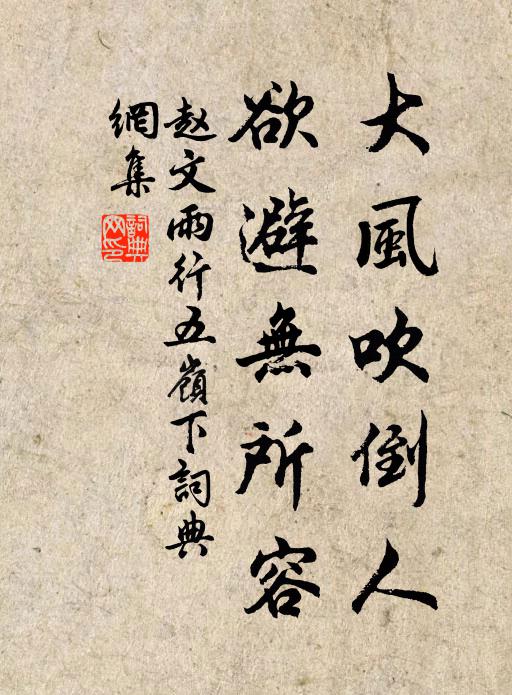 大風吹倒人
欲避無所容
赵文雨行五嶺下詞典
網集
詞典網印